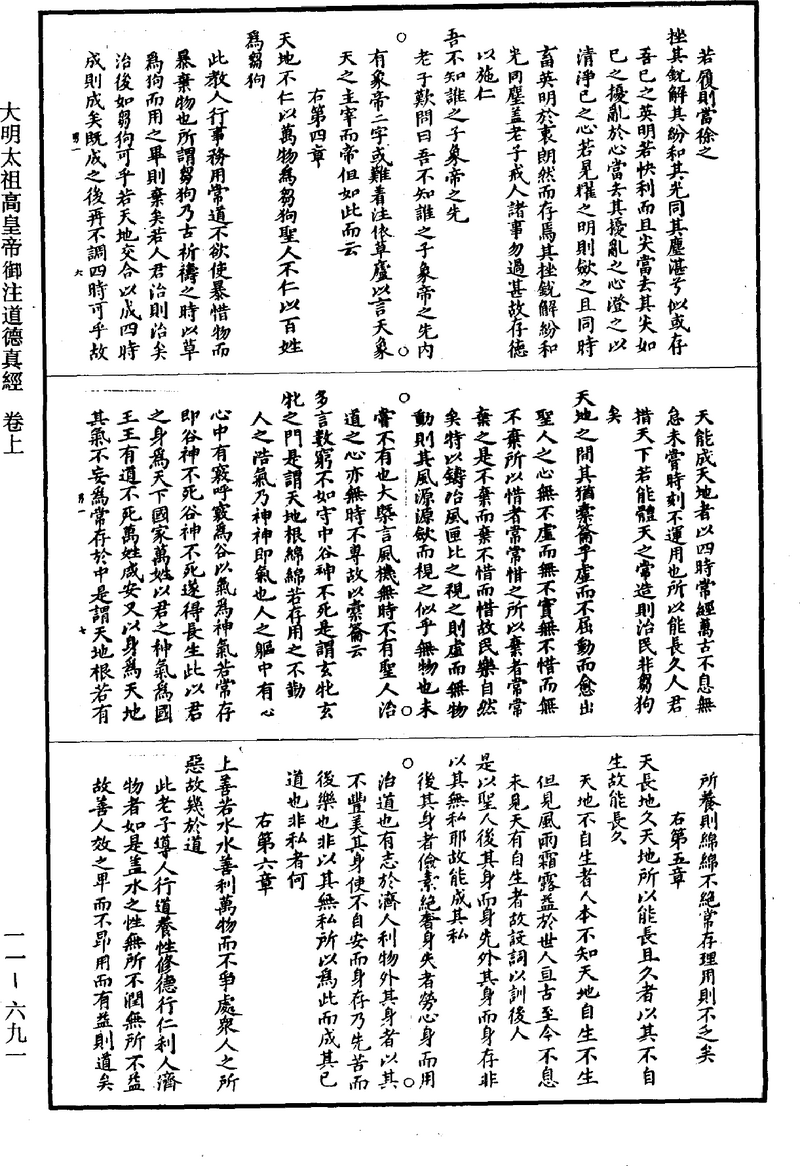 若履則當徐之
挫其銳解其紛和其光同其塵湛兮似或存
吾已之英明若快利而且尖當去其尖如
已之擾亂於心當去其擾亂之心澄之以
清淨已之心若晃耀之明則歛之且同時
畜英明於衷朗然而存焉其挫銳解紛和
光同塵蓋老子戒人諸事勿過甚故存德
以施仁
吾不知誰之子象帝之先
老子歎問曰吾不知誰之子象帝之先內
有象帝二字或難着注依草廬以言天象
天之主宰而帝但如此而云
右第四章
天地不仁以萬物為芻狗聖人不仁以百姓
為芻狗
此教人行事務用常道不欲使暴惜物而
暴棄物也所謂芻狗乃古祈禱之時以草
為狗而用之畢則棄矣若人君治則治矣
治後如芻狗可乎若天地交合以成四時
成則成矣既成之後再不調四時可乎故
男一 六
天能成天地者以四時常經萬古不息無
怠未嘗時刻不運用也所以能長久人君
措天下若能體天之常造則治民非芻狗
矣
天地之間其猶橐籥乎虛而不屈動而愈出
聖人之心無不虛而無不實無不惜而無
不棄所以惜者常常惜之所以棄者常常
棄之是不棄而棄不惜而惜故民樂自然
矣特以鑄冶風匣比之視之則虛而無物
動則其風源源歛而視之似乎無物也未
嘗不有也大槩言風機無時不有聖人治
道之心亦無時不專故以橐籥云
多言數窮不如守中谷神不死是謂玄牝玄
牝之門是謂天地根綿綿若存用之不勤
人之浩氣乃神神即氣也人之軀中有心
心中有竅呼竅為谷以氣為神氣若常存
即谷神不死谷神不死遂得長生此以君
之身為天下國家萬姓以君之神氣為國
王王有道不死萬姓咸安又以身為天地
其氣不妄為常存於中是謂天地根若有
男一 七
所養則綿綿不絕常存理用則不乏矣
右第五章
天長地久天地所以能長且久者以其不自
生故能長久
天地不自生者人本不知天地自生不生
但見風雨霜露益於世人亘古至今不息
未見天有自生者故設詞以訓後人
是以聖人後其身而身先外其身而身存非
以其無私耶故能成其私
後其身者儉素絕奢身失者勞心身而用
治道也有志於濟人利物外其身者以其
不豐美其身使不自安而身存乃先苦而
後樂也非以其無私所以為此而成其已
道也非私者何
右第六章
上善若水水善利萬物而不爭處衆人之所
惡故幾於道
此老子導人行道養性修德行仁利人濟
物者如是蓋水之性無所不潤無所不益
故善人效之卑而不昂用而有益則道矣
大明太祖高皇帝御注道德真經 卷上
一一—六九一